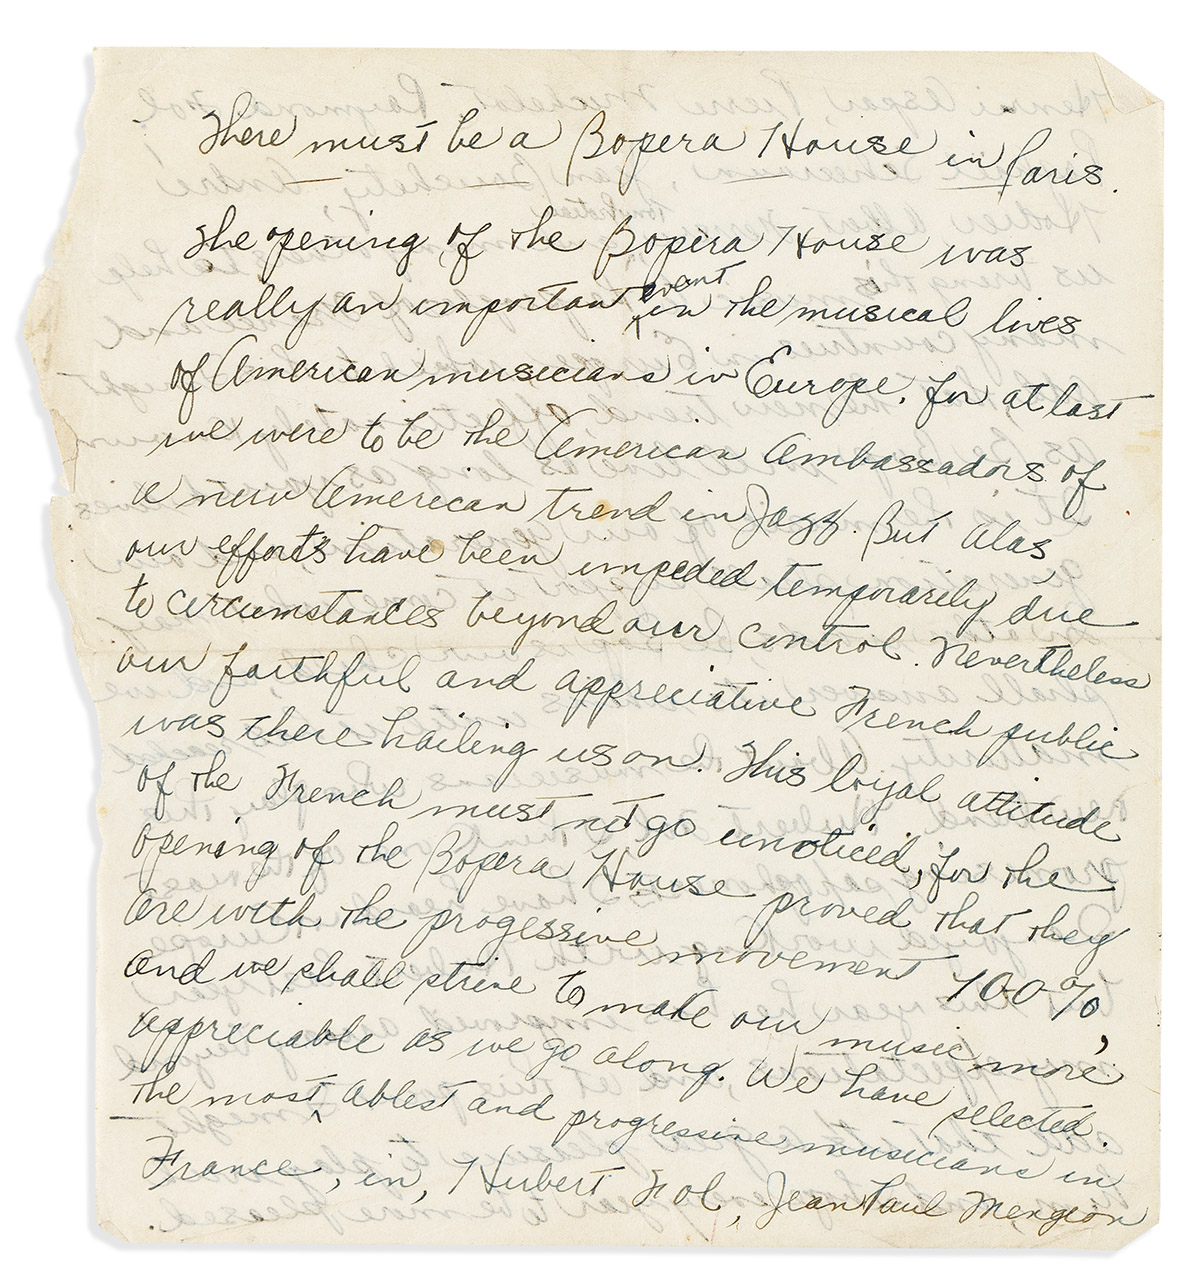 There must be a Bopera House in Paris.
The opening of the Bopera House was
really an important event in the musical lives
of American musicians in Europe. for at last
we were to be the American Ambassadors of
a new American trend in Jazz. But alas
our efforts have been impeded temporarily due
to circumstances beyond our control. Nevertheless
our faithful and appreciative French public
was there hailing us on. This loyal attitude
of the French must not go unoticed, for the
opening of the Bopera House proved that they
are with the progessive movement 100%,
and we shall strive to make our music more
appreciable as we go along. We have selected.
the most ablest and progressive musicians in
France, in, Hubert Fol, Jean Paul Mengeon